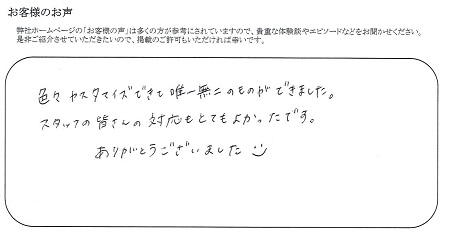 お客様のお声
弊社ホームページの「お客様の声」は多くの方が参考にされていますので、貴重な体験談やエピソードなどをお聞かせください。
是非ご紹介させていただきたいので、掲載のご許可もいただければ幸いです。
色々カスタマイズできて唯一無二のものができました。
スタッフの皆さんの対応もとてもよかったです。
ありがとうございました